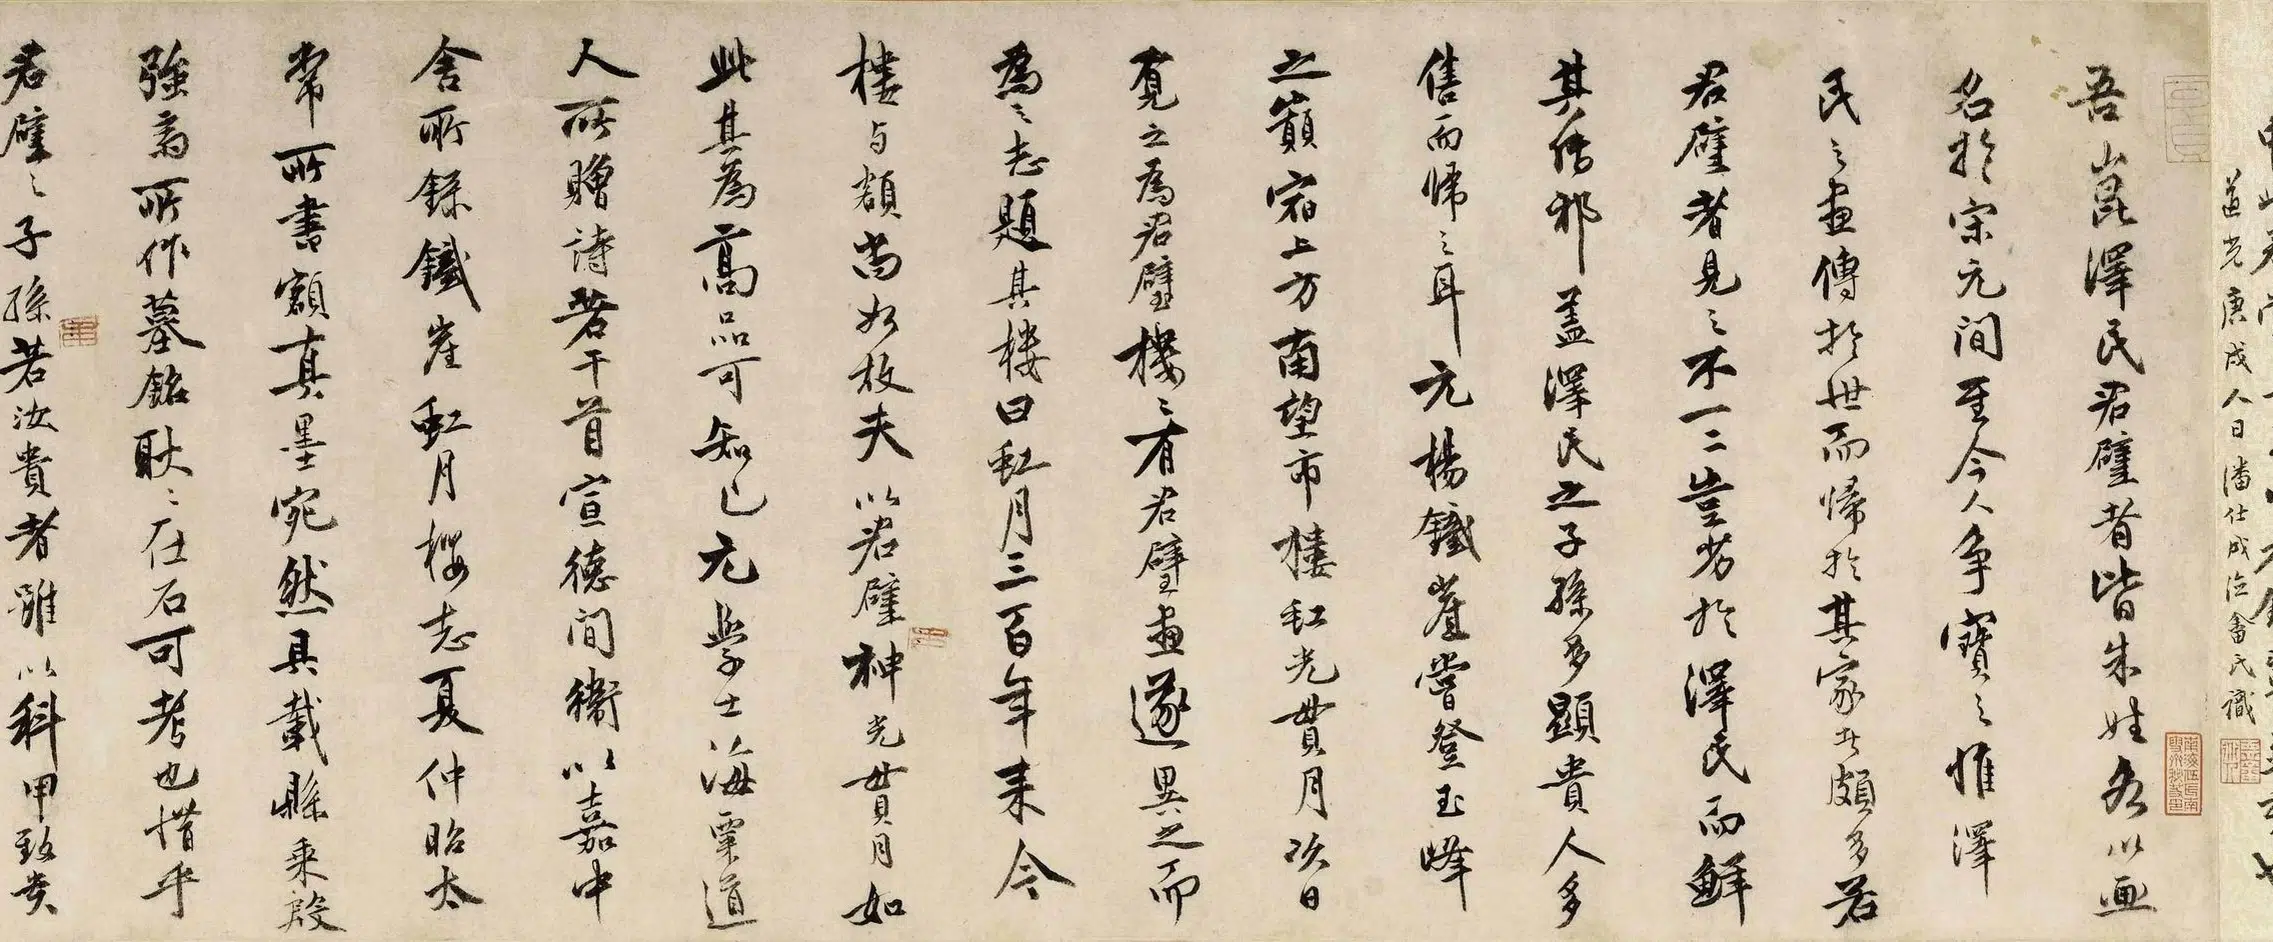 道光庚戌人日潘仕成德畬氏識
吾崑澤民君璧者皆朱姓各以画
名於宋元間至今人爭寶之惟澤
民之畫傳於世而歸於其家者頗多若
君璧者見之不一二豈劣於澤民而鮮
其傳邪蓋澤民之子孫多顯貴人多
售而歸之耳元楊鐵崖嘗登玉峰
之巔宿上方南望市樓虹光貫月次日
覓之為君璧樓樓有君璧畫遂異之而
為之志題其樓曰虹月三百年來今
樓與額尚如故夫以君璧神光貫月如
此其為高品可知已元學士海粟道
人所贈詩若干首宣德間衛以嘉中
舍所錄鐵崖虹月樓志夏仲昭太
常所書額真墨宛然具載縣乘殷
強齋所作墓銘耿耿在石可考也惜乎
君璧之子孫若汝貴者雖以科甲致貴